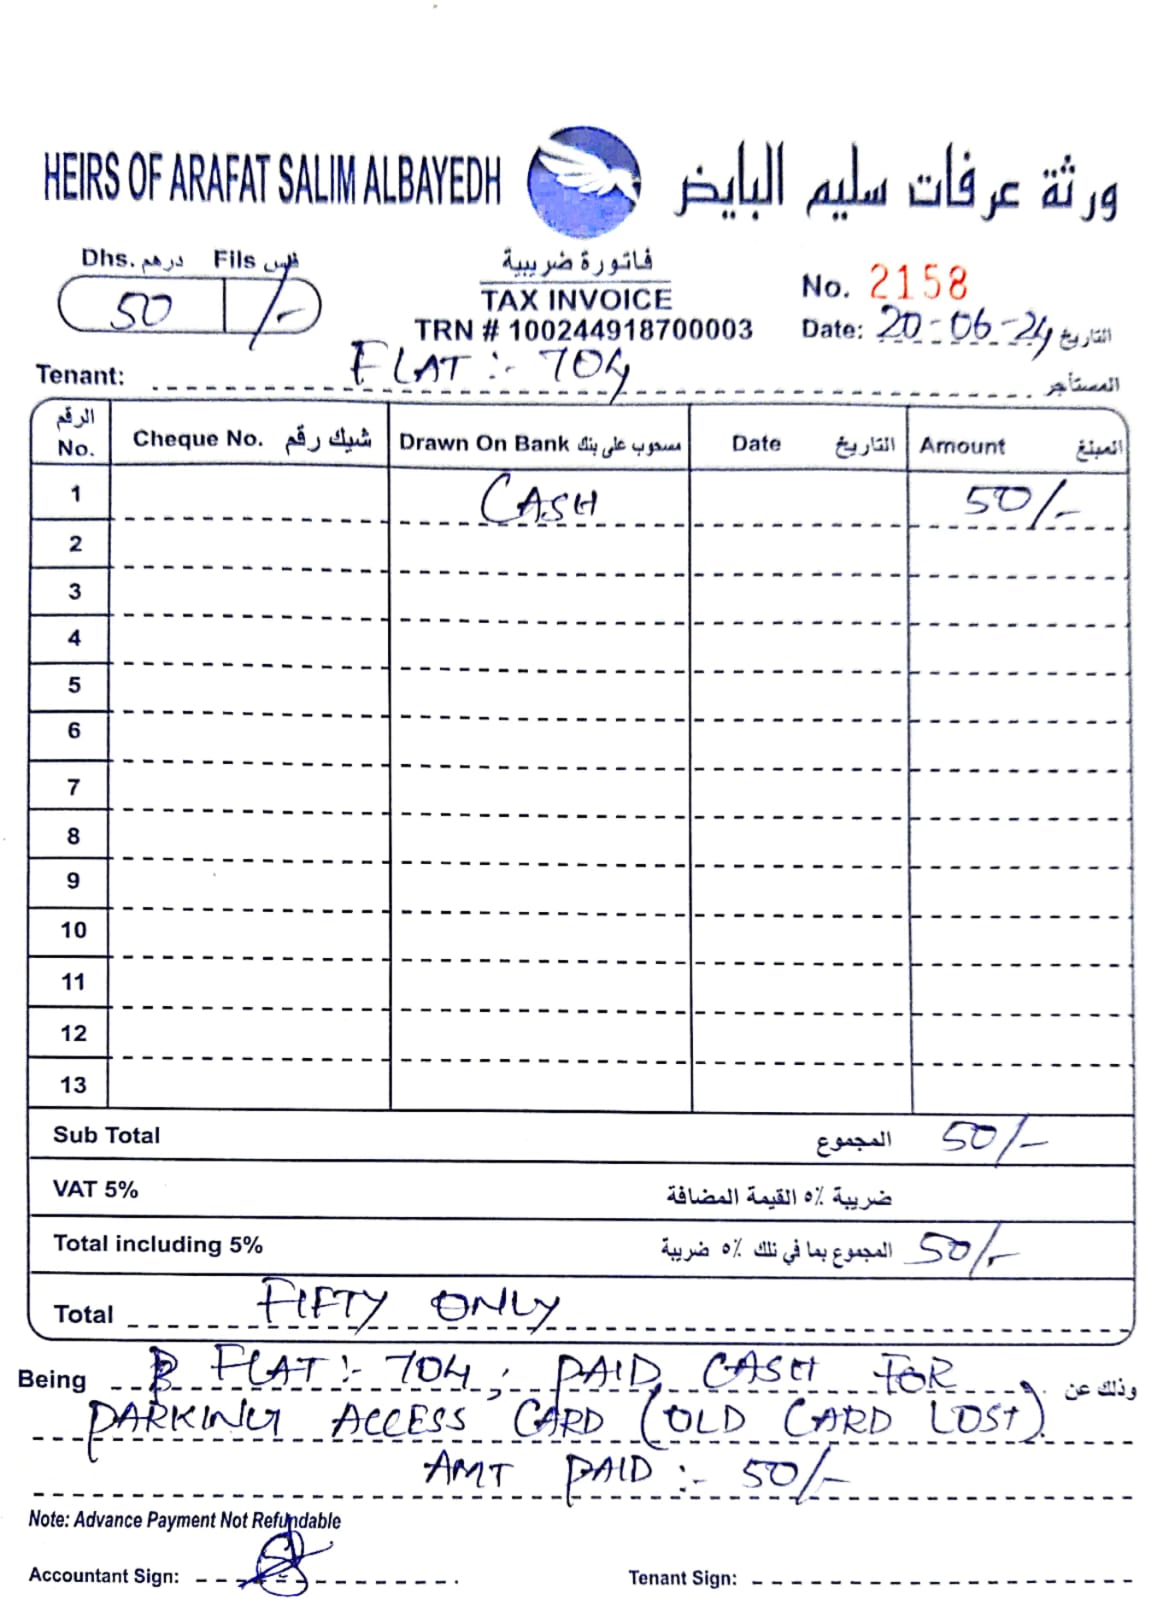 HEIRS OF ARAFAT SALIM ALBAYEDH ورثة عرفات سليم البايض
Dhs. درهم Fils فلس
50 /-
فاتورة ضريبية
TAX INVOICE
TRN # 100244918700003
No. 2158
Date: 20-06-24 التاريخ
Tenant: FLAT :- 704 المستأجر
الرقم No. Cheque No. شيك رقم Drawn On Bank مسحوب على بنك Date التاريخ Amount المبلغ
1 CASH 50/-
2
3
4
5
6
7
8
9
10
11
12
13
Sub Total المجموع 50/-
VAT 5% ضريبة ٥٪ القيمة المضافة
Total including 5% المجموع بما في ذلك ٥٪ ضريبة 50/-
Total FIFTY ONLY
Being FLAT :- 704 ; PAID CASH FOR وذلك عن
PARKING ACCESS CARD (OLD CARD LOST).
AMT PAID :- 50/-
Note: Advance Payment Not Refundable
Accountant Sign:
Tenant Sign: